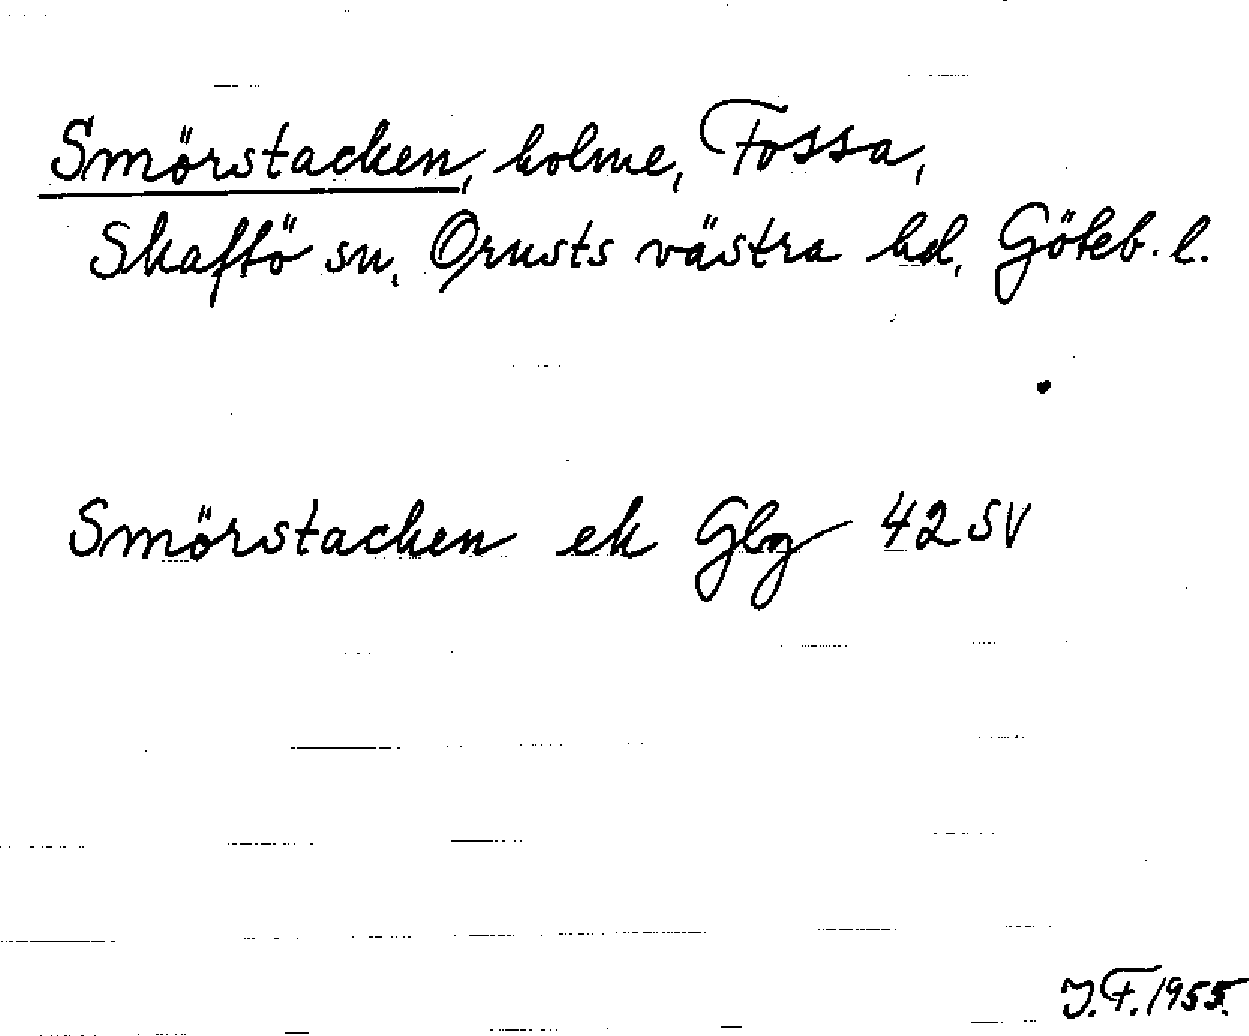 Smörstacken, holme, Fossa,
Skaftö sn, Orusts västra hd, Göteb. l.
Smörstacken ek Gbg 42 SV
J.F. 1955.